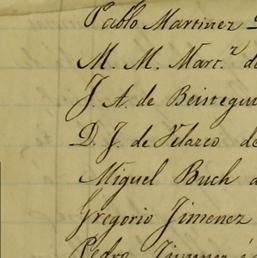 Pablo Martinez
M. M. Mart.z de
J. A. de Beistegui
D. J. de Velazco de
Miguel Buch
Gregorio Jimenez
Pedro